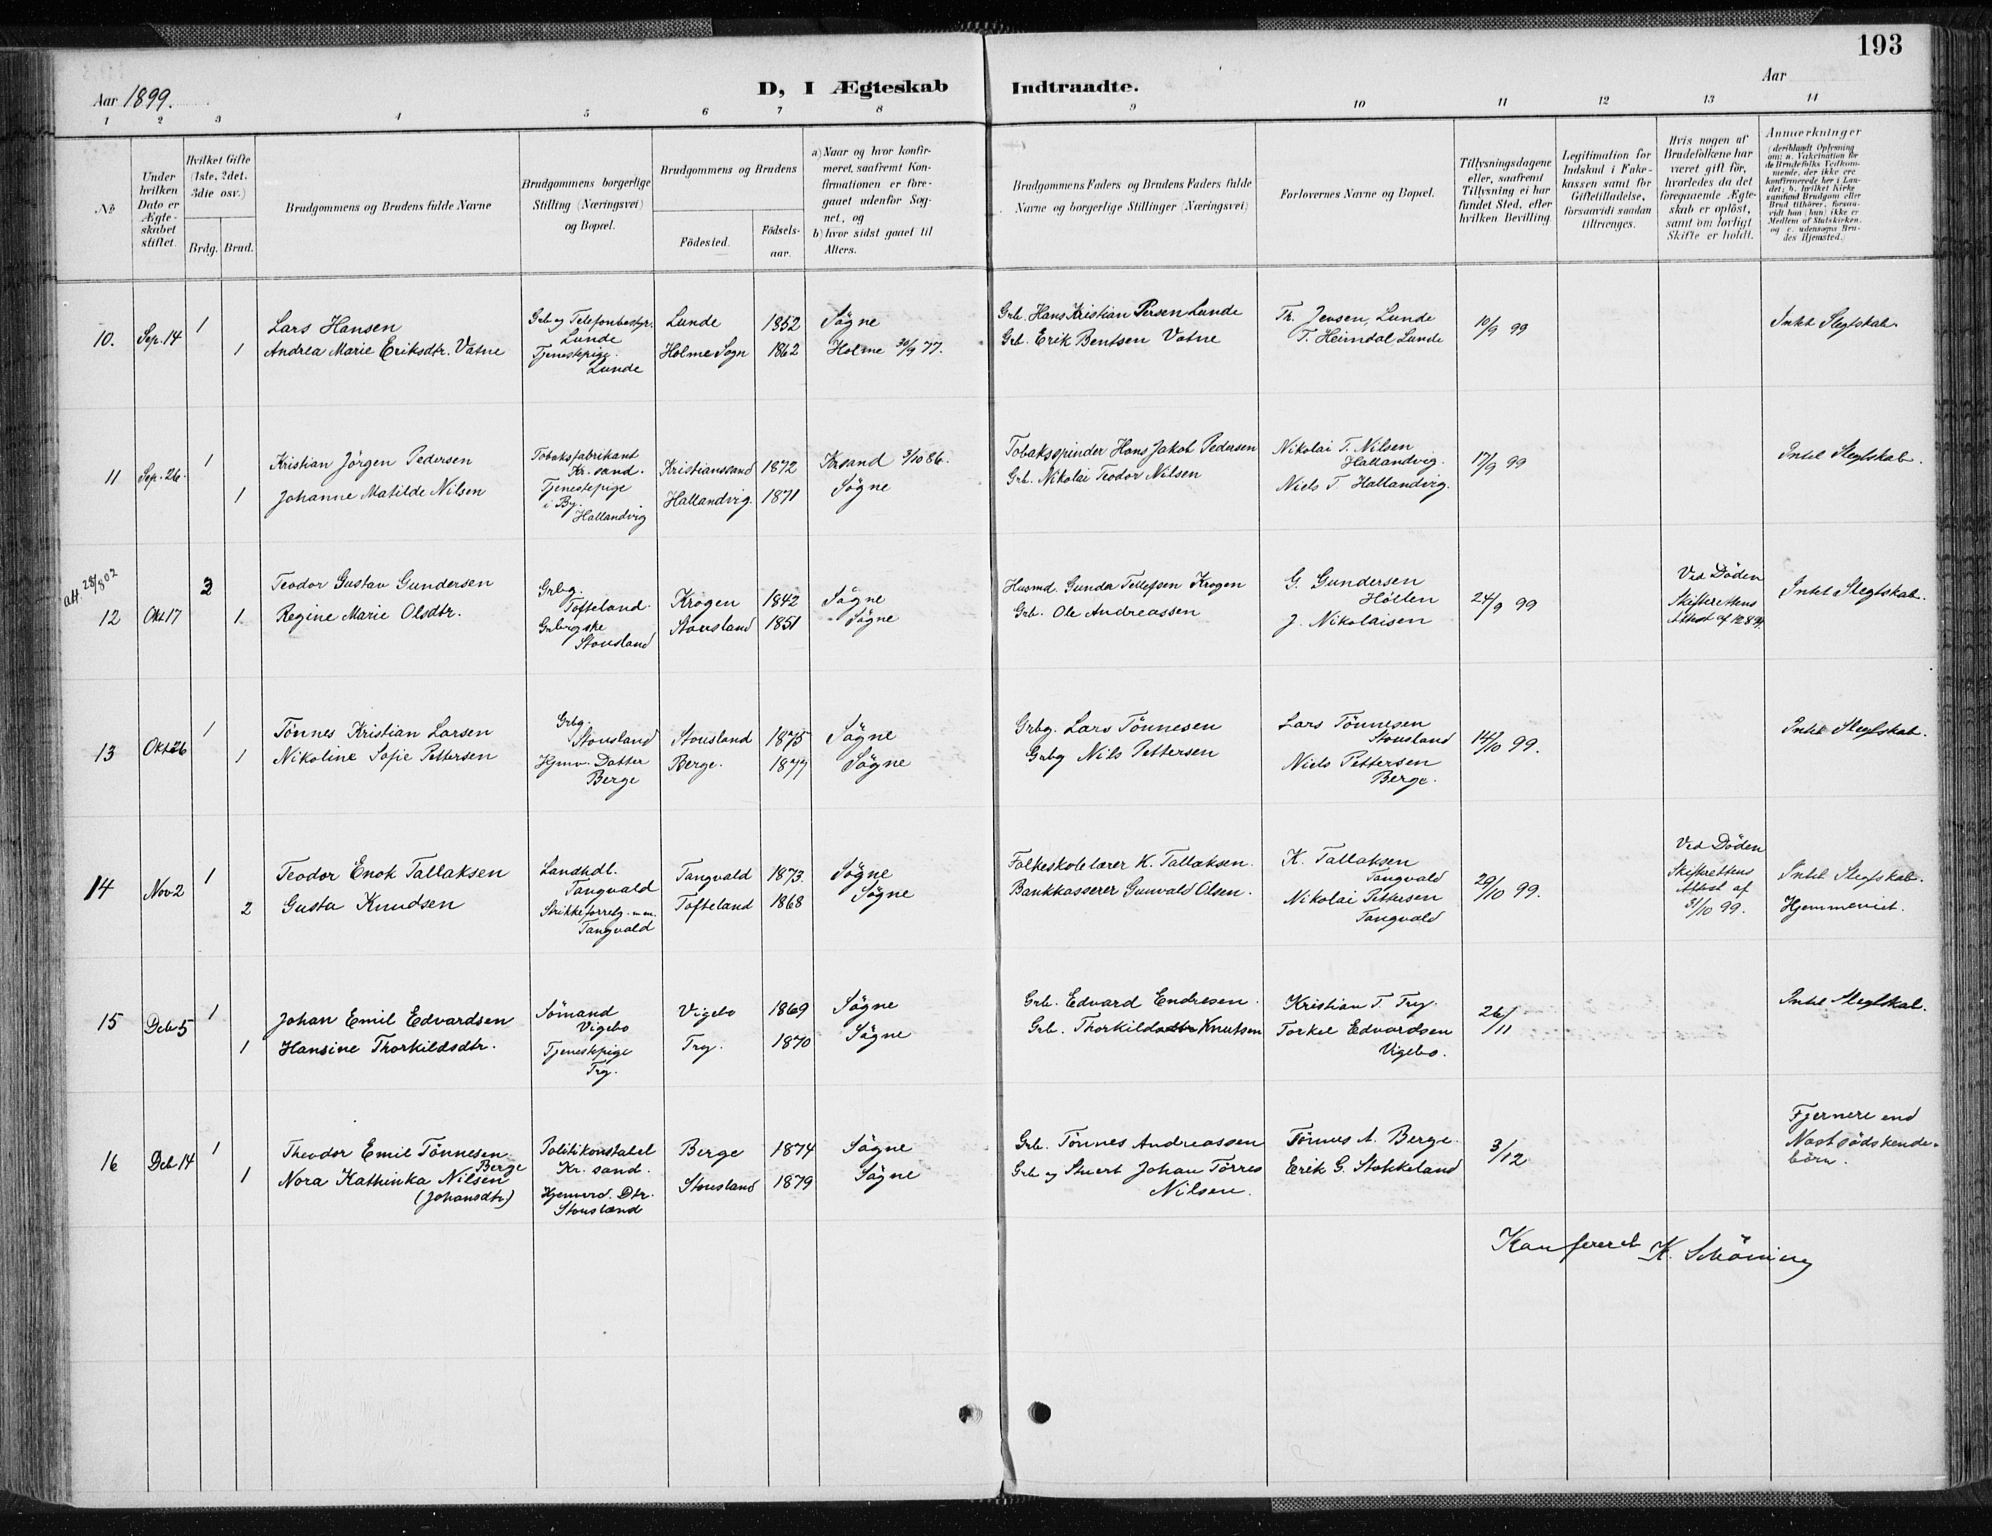 193
Aar 1899.
D, I Ægteskab Indtraadte.
Aar
1 2 3 4 5 6 7 8 9 10 11 12 13 14
No
Under hvilken Dato er Ægteskabet stiftet.
Hvilket Gifte (1ste, 2det, 3die osv.)
Brdg. Brud.
Brudgommens og Brudens fulde Navne
Brudgommens borgerlige Stilling (Næringsvei) og Bopæl.
Brudgommens og Brudens
Födested.
Födselsaar.
a) Naar og hvor konfirmeret, saafremt Konfirmationen er foregaaet udenfor Sognet, og
b) hvor sidst gaaet til Alters.
Brudgommens Faders og Brudens Faders fulde Navne og borgerlige Stillinger (Næringsvei)
Forlovernes Navne og Bopæl.
Tillysningsdagene eller, saafremt Tillysning ei har fundet Sted, efter hvilken Bevilling.
Legitimation for Indskud i Enkekassen samt for Giftetilladelse, forsaavidt saadan tiltrænges.
Hvis nogen af Brudefolkene har været gift för, hvorledes da det foregaaende Ægteskab er oplöst, samt om lovligt Skifte er holdt.
Anmærkninger
(deriblandt Oplysning om: a. Vakcination for de Brudefolks Vedkommende, der ikke ere konfirmerede her i Landet; b. hvilket Kirkesamfund Brudgom eller Brud tilhörer, forsaavidt han (hun) ikke er Medlem af Statskirken, og c. udensogns Brudes Hjemsted.)
10. Sep. 14 1 Lars Hansen Grb og Telefonbestyr. Lunde Lunde 1852 Sögne Grb. Hans Kristian Persen Lunde Th. Jensen, Lunde 10/9 99 Intet Slegtskab.
1 Andrea Marie Eriksdtr. Vatne Tjenestepige. Lunde Holme Sogn 1862 Holme 30/9 77. Grb. Erik Bentsen Vatne T. Heimdal Lunde
11 Sep. 26. 1 Kristian Jörgen Pedersen Tobaksfabrikant Kr.sand. Kristianssand 1872 Krsand 3/10 86. Tobaksspinder Hans Jakob Pedersen Nikolai T. Nilsen Hallandvig. 17/9 99 Intet Slegtskab.
1 Johanne Matilde Nilsen Tjenestepige i By. Hallandvig Hallandvig. 1871 Sögne Grb. Nikolai Teodor Nilsen Niels T. Hallandvig.
att. 28/8 02
12 Okt 17 2 Teodor Gustav Gundersen Grbg. Tofteland. Krogen 1842 Sögne Husmd. Gunder Tellefsen Krogen G. Gundersen Höllen 24/9 99 Ved Döden Skifterettens Attest af Intet Slegtskab.
1. Regine Marie Olsdtr. Grbrgske Stousland Stousland 1851 Sögne Grb. Ole Andreassen J. Nikolaisen
13 Okt 26 1 Tönnes Kristian Larsen Grbg. Stousland Stousland 1875 Sögne Grbg. Lars Tönnesen Lars Tönnesen Stousland 14/10 99. Intet Slegtskab.
1 Nikoline Sofie Pettersen Hjmv. Datter Berge Berge. 1877 Sögne Grbg Nils Pettersen Niels Pettersen Berge.
14 Nov 2 1 Teodor Enok Tallaksen Landhdl. Tangvald Tangvald 1873. Sögne Folkeskolelærer K. Tallaksen. K. Tallaksen Tangvald 29/10 99. Ved Döden Skifterettens Attest af 31/10 99. Intet Slegtskab. Hjemmeviet.
2 Gusta Knudsen Strikkeforretg. Tangvald Tofteland 1868 Sögne Bankkasserer Gunvald Olsen. Nikolai Pettersen Tangvald
15 Deb 5 1 Johan Emil Edvardsen Sömand Vigebo Vigebo 1869 Sögne Grb. Edvard Endresen. Kristian T. Try. 26/11 Intet Slegtskab.
1 Hansine Thorkildsdtr. Tjenestepige Try. Try. 1870 Sögne Grb. Thorkild Knutsen Torkel Edvardsen Vigebo.
16 Deb 14 1 Theodor Emil Tönnesen Berge Politikonstabel Kr. sand. Berge 1874 Sögne Grb. Tönnes Andreassen Tönnes A. Berge. 3/12 Fjernere end Nastsödskendebörn.
1 Nora Kathinka Nilsen (Johansdtr) Hjemvd. Dtr. Stousland Stousland 1879 Sögne Grb og Snert Johan Törres Nilsen. Erik G. Stokkeland
Konfereret K. Schöning